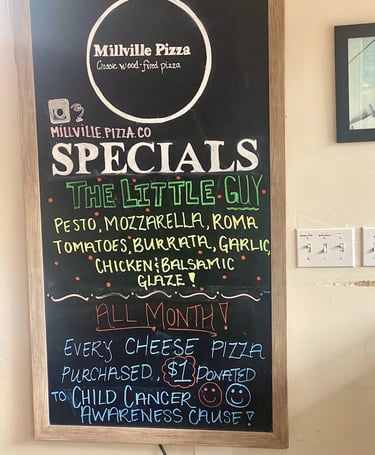 Millville Pizza
Classic wood-fired pizza
MILLVILLE.PIZZA.CO
SPECIALS
THE LITTLE GUY
PESTO, MOZZARELLA, ROMA
TOMATOES, BURRATA, GARLIC,
CHICKEN & BALSAMIC
GLAZE!
ALL MONTH!
EVERY CHEESE PIZZA
PURCHASED, $1 DONATED
TO CHILD CANCER
AWARENESS CAUSE!